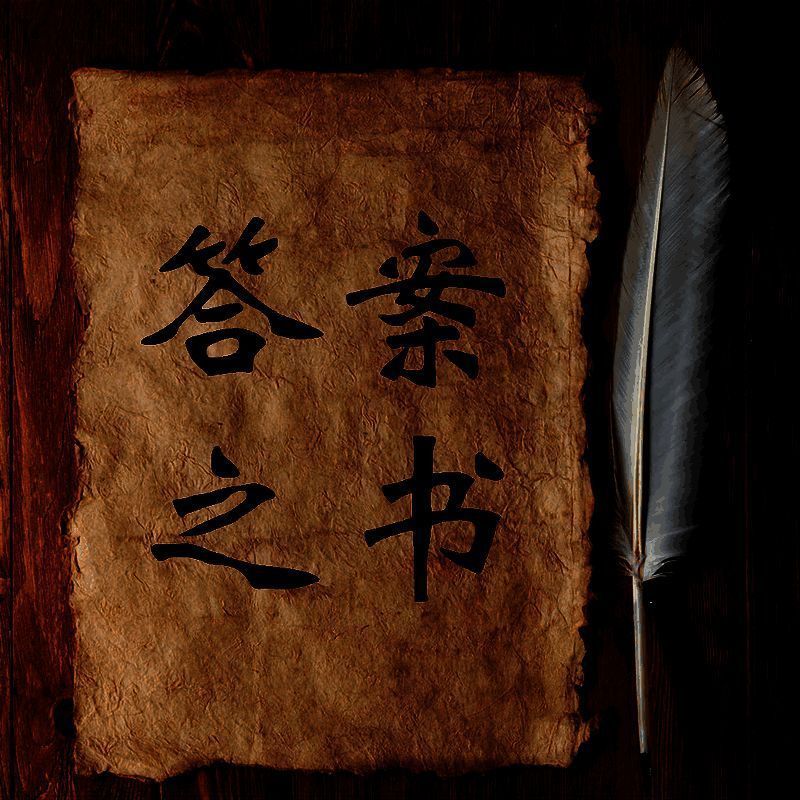 答案
之书